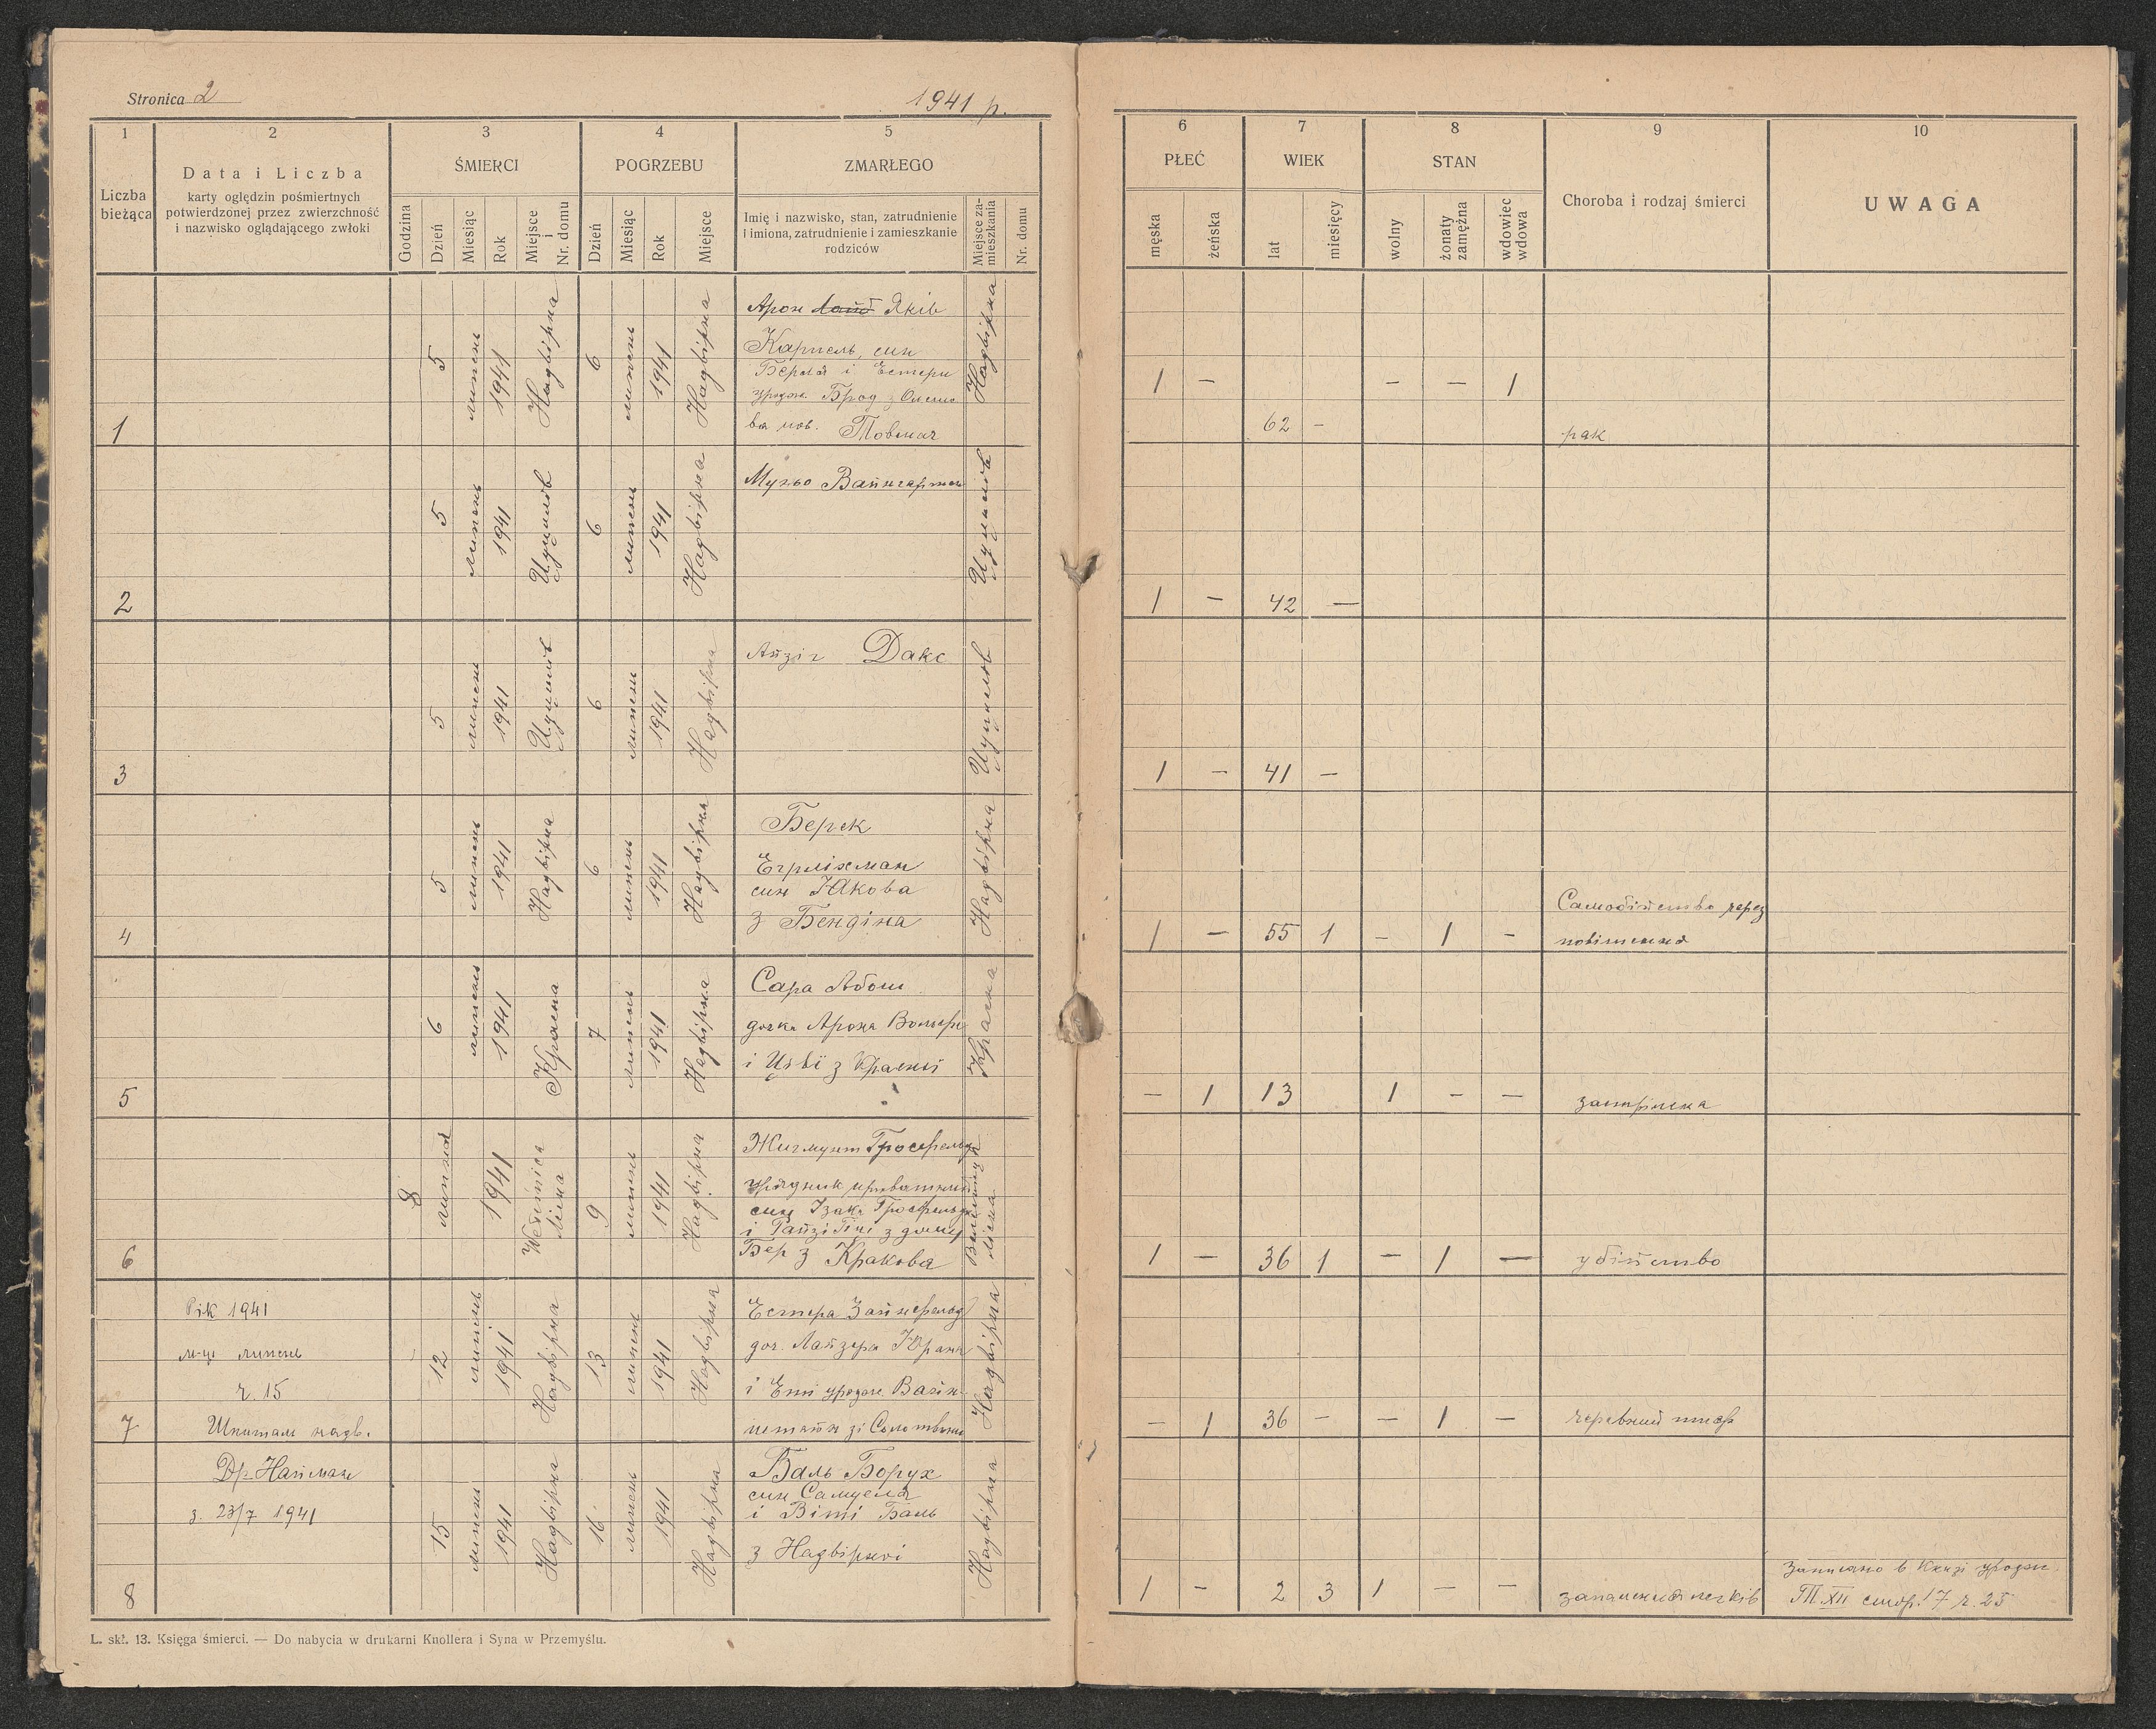 Stronica 2
1941 р.
1
2
3
4
5
Liczba bieżąca
Data i Liczba
karty oględzin pośmiertnych
potwierdzonej przez zwierzchność
i nazwisko oglądającego zwłoki
ŚMIERCI
Godzina
Dzień
Miesiąc
Rok
Miejsce i Nr. domu
POGRZEBU
Dzień
Miesiąc
Rok
Miejsce
ZMARŁEGO
Imię i nazwisko, stan, zatrudnienie
i imiona, zatrudnienie i zamieszkanie
rodziców
Miejsce zamieszkania
Nr. domu
6
7
8
9
10
PŁEĆ
męska
żeńska
WIEK
lat
miesięcy
STAN
wolny
żonaty zamężna
wdowiec wdowa
Choroba i rodzaj śmierci
UWAGA
1
5
липень
1941
Надвірна
6
липень
1941
Надвірна
Арон Яків
Карпель, син
і Естери
уродж. Брод з
пов. Товмач
Надвірна
1 — 62 — — — 1
рак
2
5
липень
1941
6
липень
1941
Надвірна
Муньо Вайнгартен
1 — 42 —
3
5
липень
1941
6
липень
1941
Надвірна
Айзіг Дакс
1 — 41 —
4
5
липень
1941
Надвірна
6
липень
1941
Надвірна
Берек
Ерліхман
син Якова
з Бендіна
Надвірна
1 — 55 1 — 1 —
Самобійство через
повішення
5
6
липень
1941
Красна
7
липень
1941
Надвірна
Сара
дочка Арона
і Ціві з Красної
Красна
— 1 13 1 — —
застрілена
6
8
липня
1941
9
липень
1941
Надвірна
Жигмунт Гросфельд
урядник приватний
син Ізака Гросфельда
і з дому
Бер з Кракова
1 — 36 1 — 1 —
убійство
7
Рік 1941
м-ць липень
ч. 15
Шпиталь надв.
12
липень
1941
Надвірна
13
липень
1941
Надвірна
Естера Зайнфельд
доч. Лайзера
і Еті уродж. Вайн-
штайн зі Солотвини
Надвірна
— 1 36 — — 1 —
черевний тиф
8
Др. Найман
з. 23/7 1941
15
липень
1941
Надвірна
16
липень
1941
Надвірна
Баль Борух
син Самуеля
і Віті Баль
з Надвірної
Надвірна
1 — 2 3 1 — —
запалення легків
Записано в Книзі уродж.
Т. XII стор. 17 ч. 25
L. skł. 13. Księga śmierci. — Do nabycia w drukarni Knollera i Syna w Przemyślu.